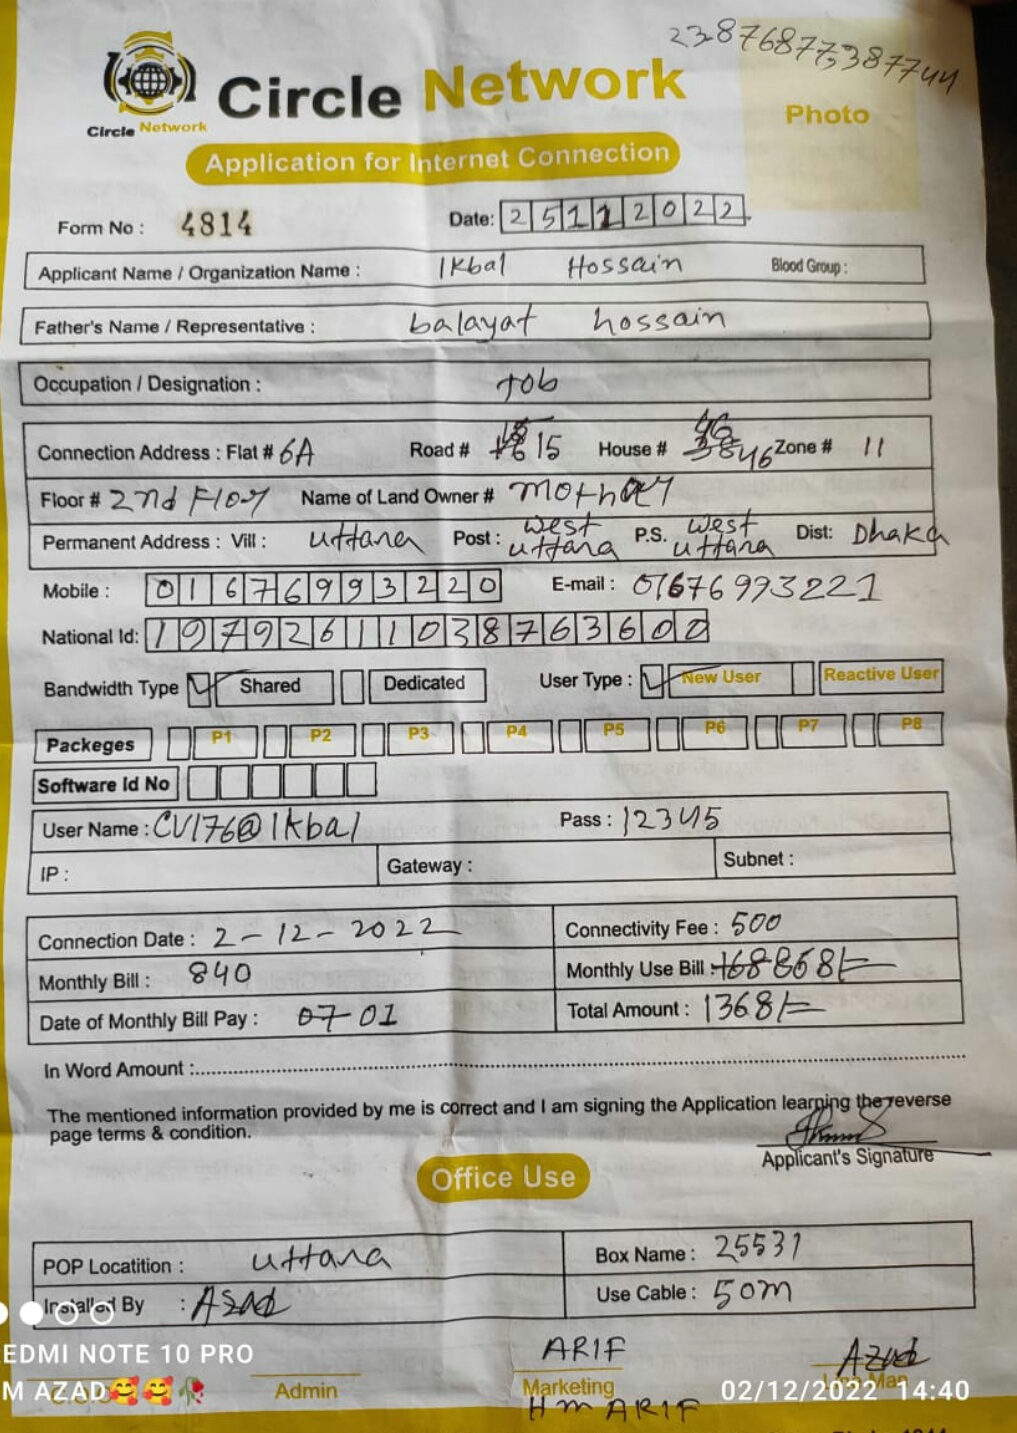 23876877,387744
Circle Network
Circle Network
Photo
Application for Internet Connection
Form No : 4814 Date: 25112022
Applicant Name / Organization Name : Ikbal Hossain Blood Group :
Father's Name / Representative : balayat hossain
Occupation / Designation : Job
Connection Address : Flat # 6A Road # 15 House # 46 Zone # 11
Floor # 2nd Flor Name of Land Owner #
Permanent Address : Vill : uttara Post : west uttara P.S. west uttara Dist: Dhaka
Mobile : 01676993220 E-mail : 01676993221
National Id: 19792611038763600
Bandwidth Type Shared Dedicated User Type : New User Reactive User
Packeges P1 P2 P3 P4 P5 P6 P7 P8
Software Id No
User Name : CV176@Ikbal Pass : 12345
IP : Gateway : Subnet :
Connection Date : 2-12-2022 Connectivity Fee : 500
Monthly Bill : 840 Monthly Use Bill : 868/=
Date of Monthly Bill Pay : 07-01 Total Amount : 1368/=
In Word Amount :
The mentioned information provided by me is correct and I am signing the Application learning the reverse
page terms & condition.
Applicant's Signature
Office Use
POP Locatition : uttara Box Name : 25531
Installed By : Azad Use Cable : 50m
ARIF Azad
EDMI NOTE 10 PRO
M AZAD🥰🥰🥀 Admin Marketing Man 02/12/2022 14:40
Hm ARIF